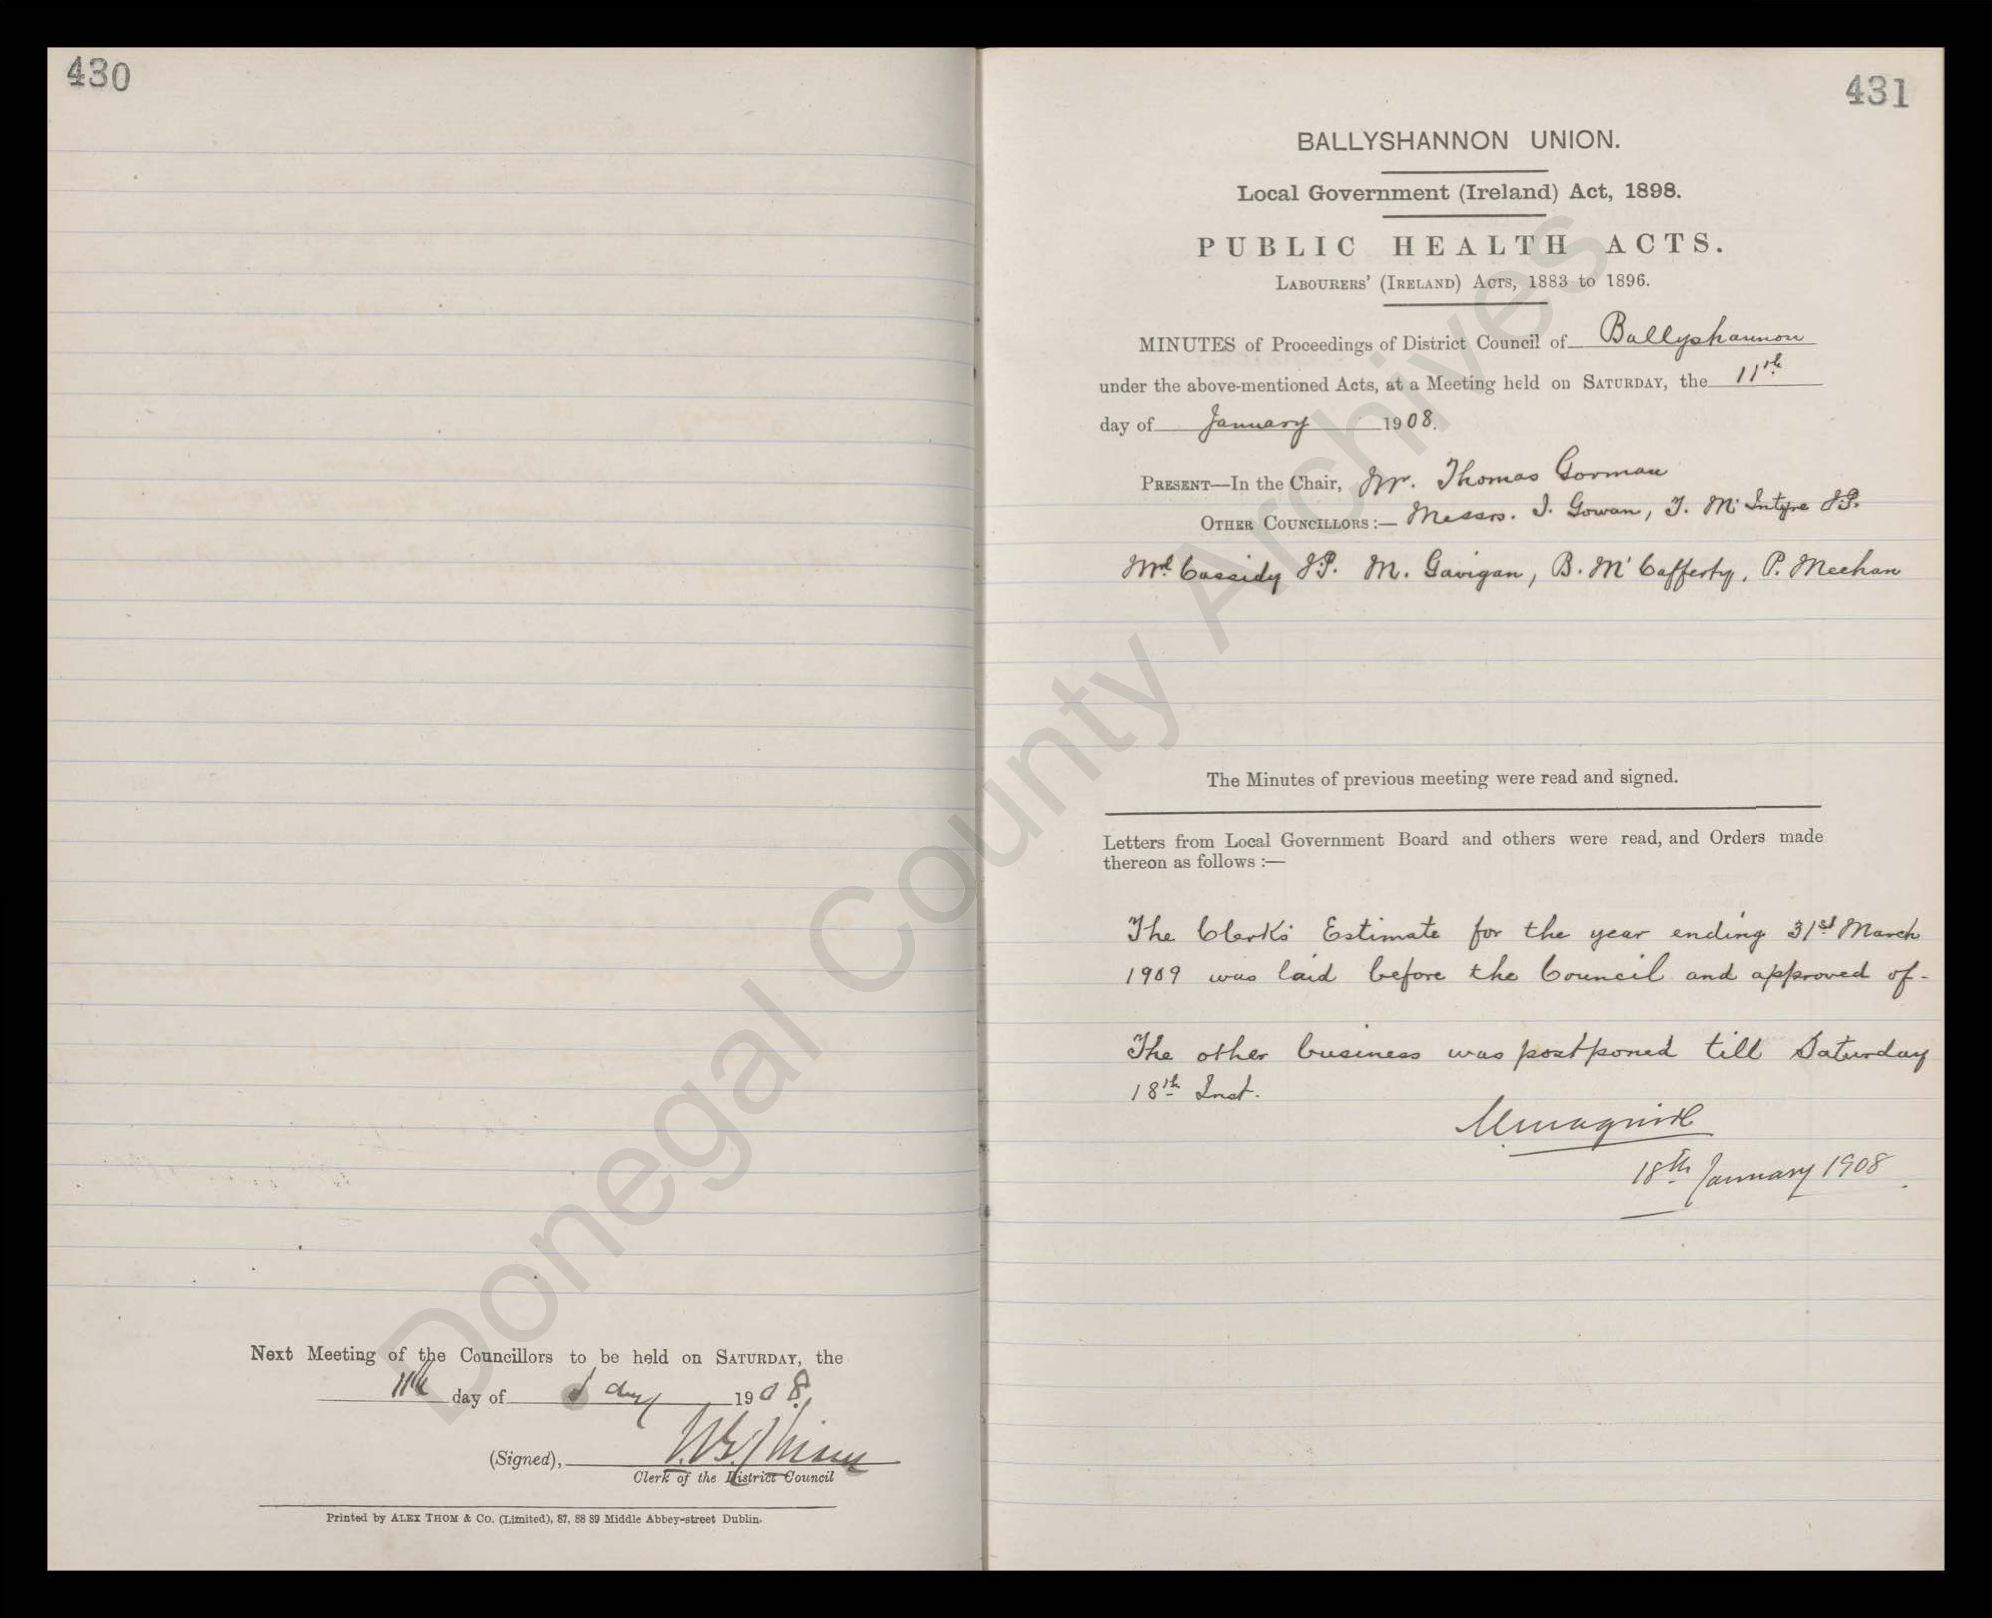 430
Next Meeting of the Councillors to be held on SATURDAY, the
11th day of Jany 1908.
(Signed),
Clerk of the District Council
Printed by ALEX THOM & Co. (Limited), 87, 88 89 Middle Abbey-street Dublin.
431
BALLYSHANNON UNION.
Local Government (Ireland) Act, 1898.
PUBLIC HEALTH ACTS.
LABOURERS' (IRELAND) ACTS, 1883 to 1896.
MINUTES of Proceedings of District Council of Ballyshannon
under the above-mentioned Acts, at a Meeting held on SATURDAY, the 11th
day of January 1908.
PRESENT—In the Chair, Mr. Thomas Gorman
OTHER COUNCILLORS:— Messrs. J. Gowan, T. McIntyre J.P.
Cassidy J.P. M. Gavigan, B. McCafferty, P. Meehan
The Minutes of previous meeting were read and signed.
Letters from Local Government Board and others were read, and Orders made
thereon as follows :—
The Clerk's Estimate for the year ending 31st March
1909 was laid before the Council and approved of-
The other business was postponed till Saturday
18th Inst.
18th January 1908
Donegal County Archives